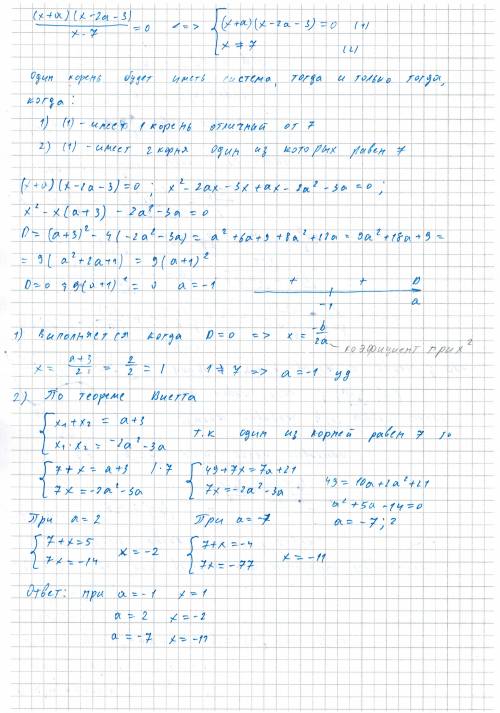 (x+a)(x-2a-3) / x-7 = 0 <=> { (x+a)(x-2a-3)=0 (1)
x ≠ 7 (2)
Один корень будет иметь система, тогда и только тогда,
когда:
1) (1) - имеет 1 корень отличный от 7
2) (1) - имеет 2 корня один из которых равен 7
(x+a)(x-2a-3)=0 ; x²-2ax-3x+ax-2a²-3a=0 ;
x²-x(a+3)-2a²-3a=0
D=(a+3)²-4(-2a²-3a)= a²+6a+9+8a²+12a=9a²+18a+9=
= 9(a²+2a+1) = 9(a+1)²
D=0 9(a+1)² = 0 a=-1
+ + D
-1 a
1) Выполняется когда D=0 => x = -b/2a коэфициент при x²
x = a+3/2·1 = 2/2 = 1 1≠7 => a=-1 уд
2) По теореме Виетта
{ x₁+x₂ = a+3
x₁·x₂ = -2a²-3a
т.к один из корней равен 7 то
{ 7+x=a+3 |·7
7x=-2a²-3a
{ 49+7x=7a+21
7x=-2a²-3a
49=10a+2a²+21
a²+5a-14=0
a=-7;2
При a=2
{ 7+x=5
7x=-14
x=-2
При a=-7
{ 7+x=-4
7x=-77
x=-11
Ответ: при a=-1 x=1
a=2 x=-2
a=-7 x=-11